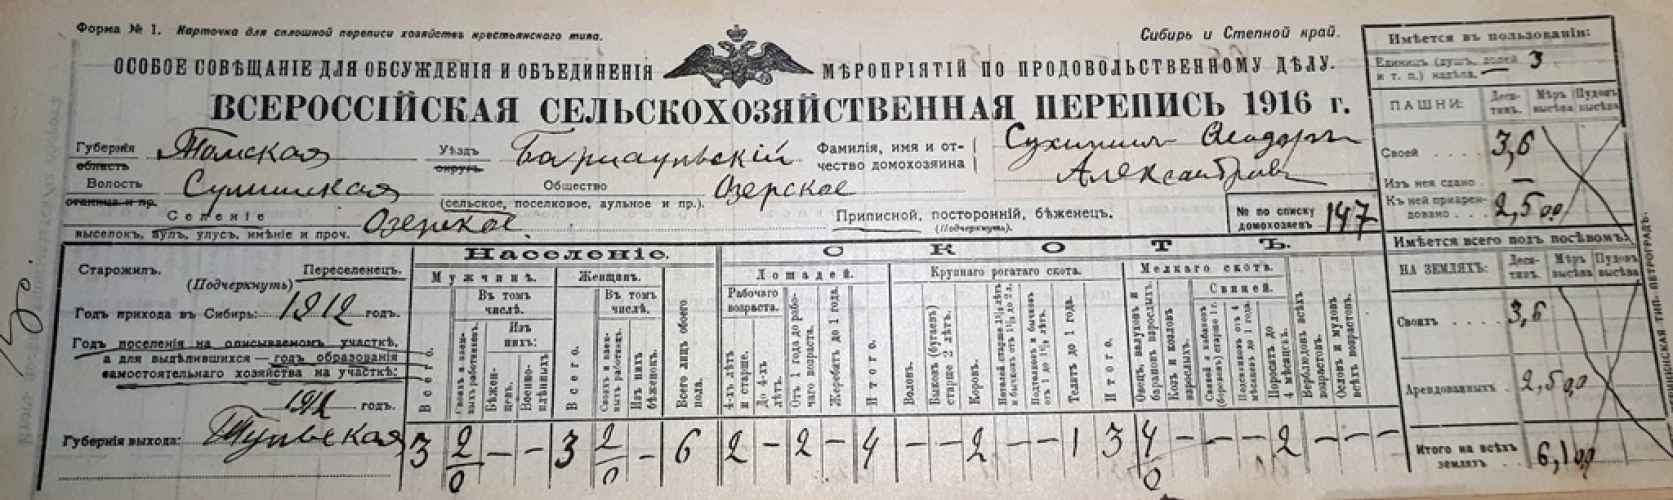 Форма № 1. Карточка для сплошной переписи хозяйствъ крестьянскаго типа.
Сибирь и Степной край.
ОСОБОЕ СОВѢЩАНІЕ ДЛЯ ОБСУЖДЕНІЯ И ОБЪЕДИНЕНІЯ МѢРОПРІЯТІЙ ПО ПРОДОВОЛЬСТВЕННОМУ ДѢЛУ.
ВСЕРОССІЙСКАЯ СЕЛЬСКОХОЗЯЙСТВЕННАЯ ПЕРЕПИСЬ 1916 г.
Губернія Томская Уѣздъ Барнаульскій Фамилія, имя и от-
область округъ чество домохозяина
Александровъ
Волость Сулинская Общество Озерское
станица и пр. (сельское, поселковое, аульное и пр.).
Селеніе Озерское Приписной, посторонній, бѣженецъ.
выселокъ, аулъ, улусъ, имѣніе и проч. (Подчеркнуть).
№ по списку
домохозяевъ 147
Старожилъ. Переселенецъ.
(Подчеркнуть)
Годъ прихода въ Сибирь: 1912 годъ.
Годъ поселенія на описываемомъ участкѣ,
а для выдѣлившихся — годъ образованія
самостоятельнаго хозяйства на участкѣ:
1912 годъ.
Губернія выхода: Тульская
Населеніе.
Мужчинъ. Женщинъ.
Всего.
Въ томъ числѣ.
Своихъ и наем-
ныхъ работниковъ.
Изъ нихъ:
Бѣжен-
цевъ.
Военно-
плѣнныхъ
Всего.
Въ томъ числѣ.
Своихъ и наем-
ныхъ работницъ.
Изъ нихъ
бѣженокъ.
Всего лицъ обоего
пола.
СКОТЪ.
Лошадей. Крупнаго рогатаго скота. Мелкаго скота.
Рабочаго
возраста.
4-хъ лѣтъ
и старше.
До 4-хъ
лѣтъ.
Отъ 1 года до рабо-
чаго возраста.
Жеребятъ до 1 года.
Итого.
Воловъ.
Быковъ (бугаевъ)
старше 2 лѣтъ.
Коровъ.
Нетелей старше 1½ лѣтъ
и бычковъ отъ 1½ до 2 л.
Подтелковъ и бычковъ
отъ 1 до 1½ лѣтъ.
Телятъ до 1 года.
Итого.
Овецъ, валуховъ и
барановъ взрослыхъ.
Козъ и козловъ
взрослыхъ.
Свиней.
Свиней и кабановъ
(борововъ) старше 1 г.
Подсвинковъ отъ 4
мѣсяцевъ до 1 года.
Поросятъ до
4 мѣсяцевъ.
Верблюдовъ всѣхъ
возрастовъ.
Ословъ и муловъ
всѣхъ возрастовъ.
3 2 – – 3 2 – 6 2 – 2 – 4 – – 2 – – 1 3 4 – – – 2 – – –
0 0 0
Имѣется въ пользованіи:
Единицъ (душъ, долей
и т. п.) надѣла. 3
ПАШНИ: Деся-
тинъ. Мѣръ
высѣва Пудовъ
высѣва
Своей 3,6
Изъ нея сдано –
Къ ней приарен-
довано 2,500
Имѣется всего подъ посѣвомъ:
НА ЗЕМЛЯХЪ: Деся-
тинъ. Мѣръ
высѣва Пудовъ
высѣва
Своихъ 3,6
Арендованныхъ 2,500
Итого на всѣхъ
земляхъ 6,100